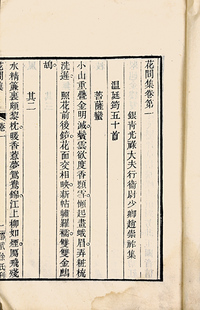 花間集卷第一
銀青光祿大夫行衛尉少卿趙崇祚集
溫廷筠五十首
菩薩蠻
小山重疊金明滅鬢雲欲度香顋雪懶起畫蛾眉弄粧梳
洗遲 照花前後鏡花面交相映新帖繡羅襦雙雙金鷓
鴣
其二
水精簾裏頗黎枕暖香惹夢鴛鴦錦江上柳如煙鴈飛殘